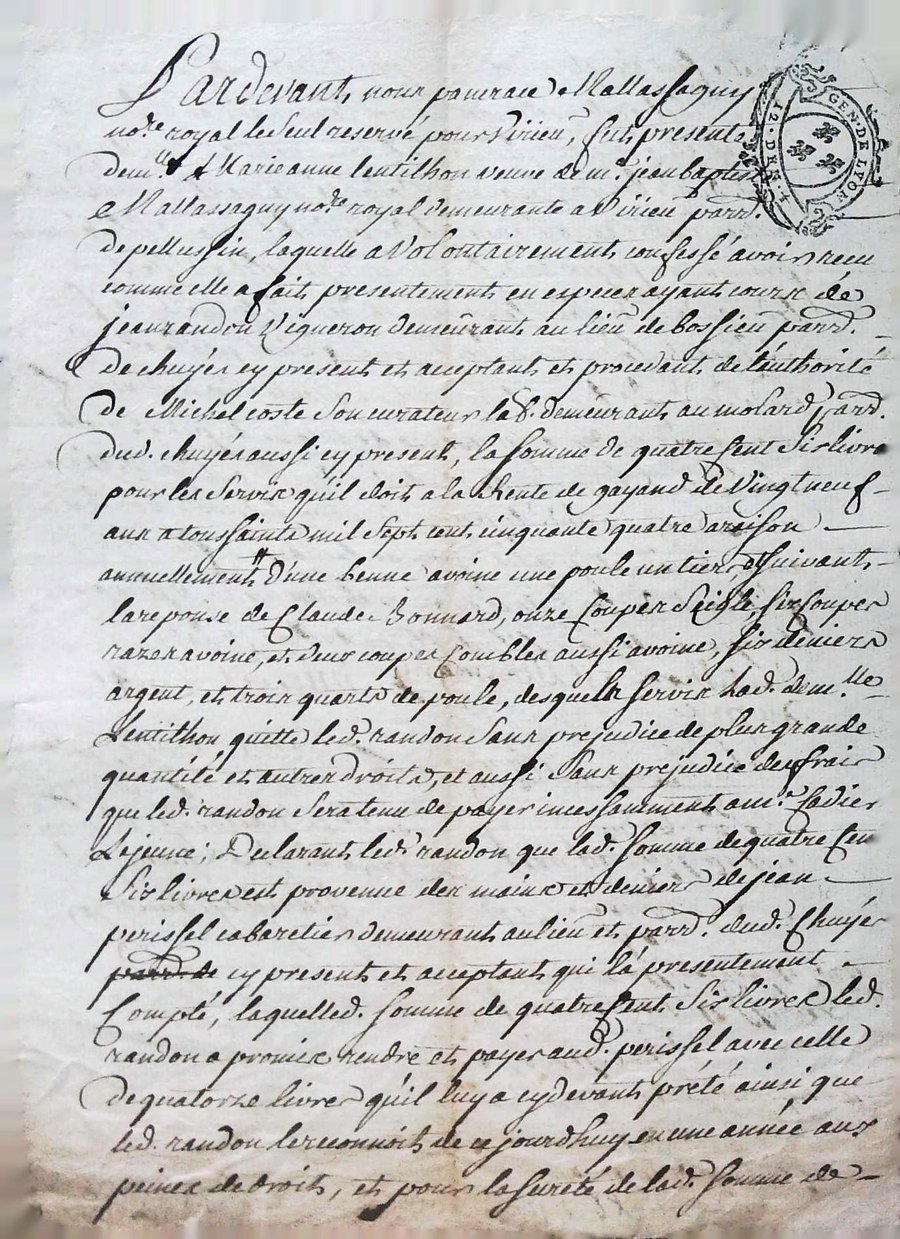 Pardevant nous pancrace Mallassagny
no.re royal le seul reservé pour Virieu, fut presente
dem.lle Marieanne lentilhon veuve de m.e jean baptiste
Mallassagny no.re royal demeurante a Virieu parr.
de pellussin, laquelle a volontairement confessé avoir receu
comme elle a fait presentement en especes ayant cours de
jean randon Vigneron demeurant au lieu de bossieu parr.
de chuyer cy present et acceptant et procedant de l'authorité
de Michel coste son curateur lab.r demeurant au molard parr.
dud. chuyer aussi cy present, la somme de quatre cent six livres
pour les servis qu'il doit a la Rente de gayand de vingt neuf
ans a toussaints mil sept cent cinquante quatre a raison
annuellement d'une benne avoine une poule un tier, et suivant
la reponse de Claude Bonnard, onze coupes seigle, six coupes
razes avoine, et deux coupes combles aussi avoine, six deniers
argent, et trois quarts de poule, desquels servis lad. dem.lle
Lentilhon quitte led. randon sans prejudice de plus grande
quantité et autres droits, et aussi sans prejudice des frais
que led. randon sera tenu de payer incessamment a m.e Cadier
Lejeune; Declarant led. randon que lad. somme de quatre cen
six livres est provenue des mains et deniers de jean
perissel cabaretier demeurant au lieu et parr. dud. Chuyer
parr. de cy present et acceptant qui l'a presentement
Compté, laquelle d. somme de quatre cent six livres led.
randon a promis rendre et payer aud. perissel avec celle
de quatorze livres qu'il luy a cy devant prété ainsi que
led. randon le reconnoit de ce jourdhuy en une année aux
peines de droit, et pour la sureté de lad. somme de
GEN. DE LYON
2